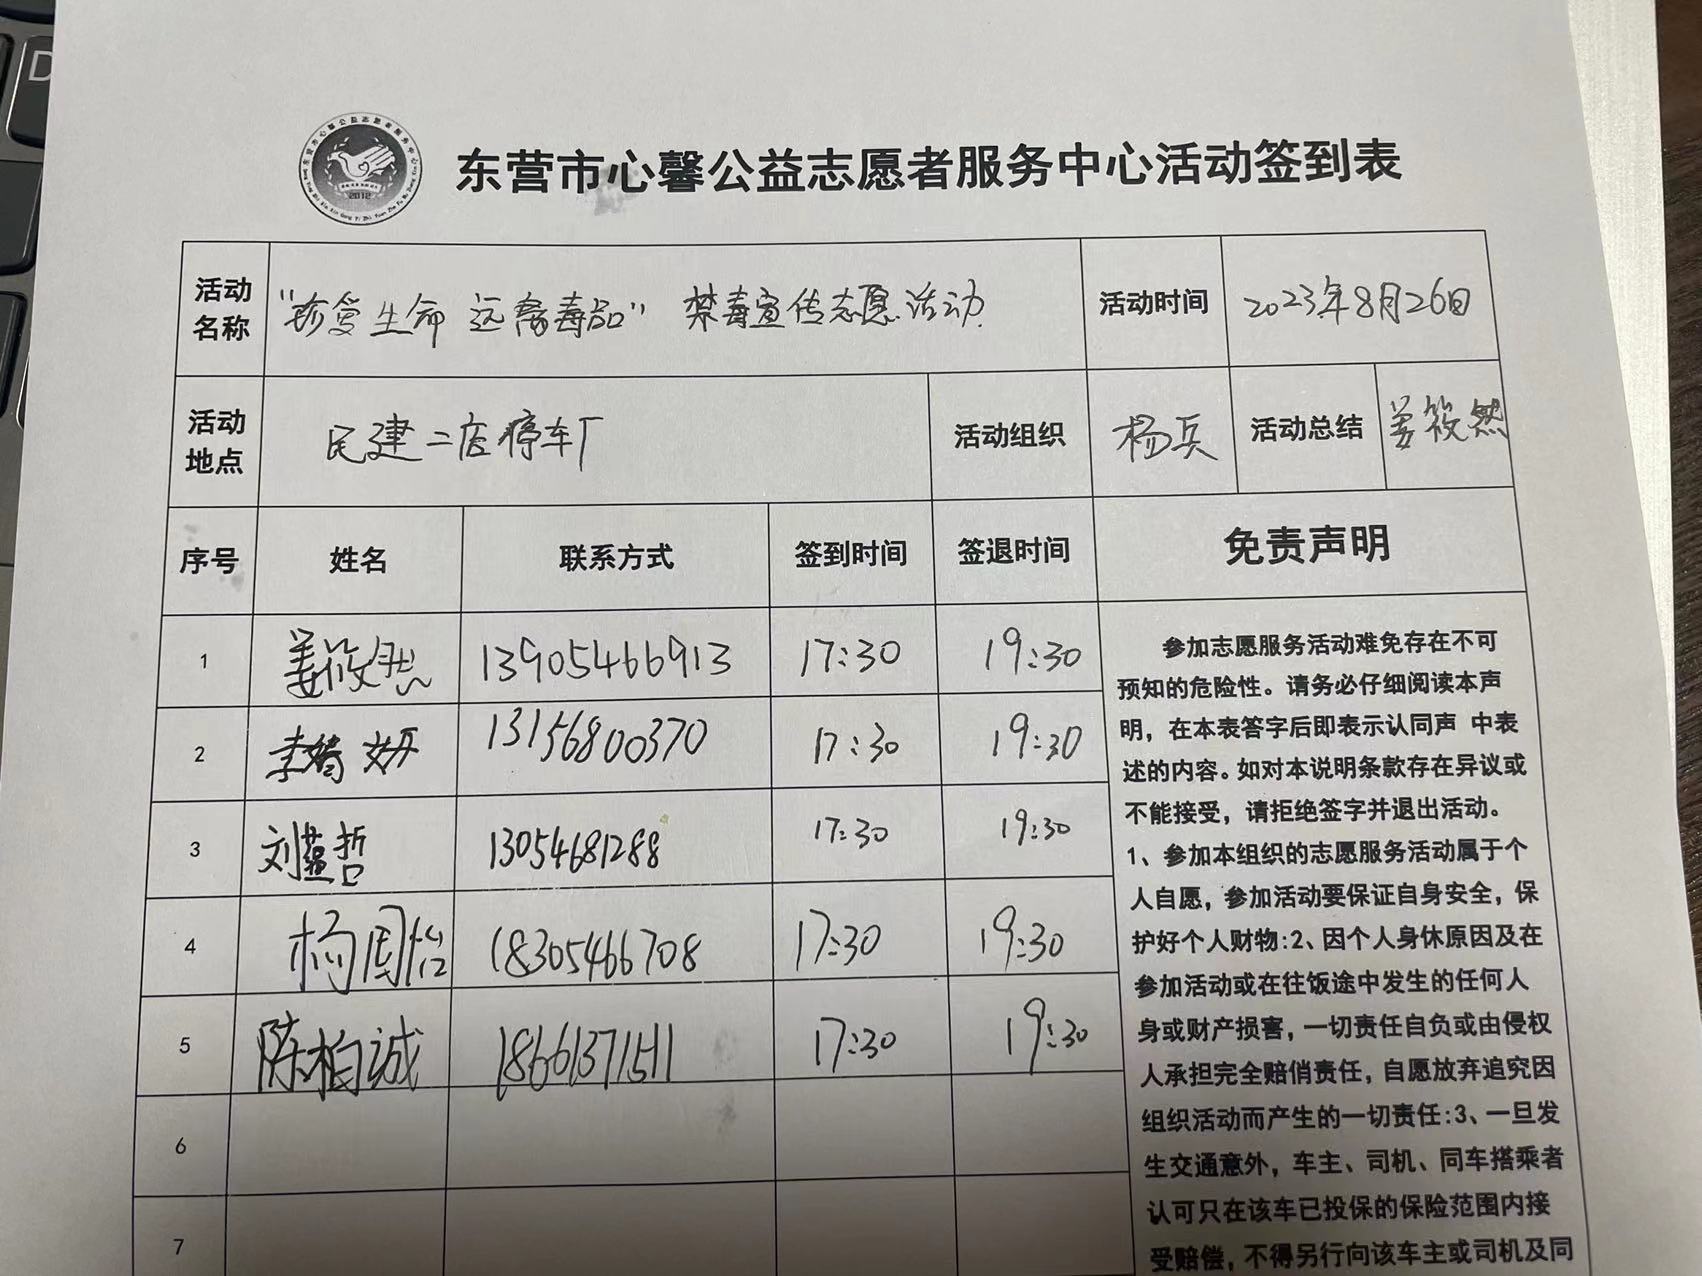 D
东营市心馨公益志愿者服务中心
2012
东营市心馨公益志愿者服务中心活动签到表
活动名称
"珍爱生命 远离毒品" 禁毒宣传志愿活动
活动时间
2023年8月26日
活动地点
民建二店停车厂
活动组织
杨兵
活动总结
姜筱然
序号 姓名 联系方式 签到时间 签退时间 免责声明
1 姜筱然 13905466913 17:30 19:30
2 李婧妍 13156800370 17:30 19:30
3 刘蕴哲 13054681288 17:30 19:30
4 杨周怡 18305466708 17:30 19:30
5 陈柏诚 18661371511 17:30 19:30
6
7
参加志愿服务活动难免存在不可
预知的危险性。请务必仔细阅读本声
明，在本表答字后即表示认同声 中表
述的内容。如对本说明条款存在异议或
不能接受，请拒绝签字并退出活动。
1、参加本组织的志愿服务活动属于个
人自愿，参加活动要保证自身安全，保
护好个人财物:2、因个人身休原因及在
参加活动或在往饭途中发生的任何人
身或财产损害，一切责任自负或由侵权
人承担完全赔俏责任，自愿放弃追究因
组织活动而产生的一切责任:3、一旦发
生交通意外，车主、司机、同车搭乘者
认可只在该车已投保的保险范围内接
受赔偿，不得另行向该车主或司机及同